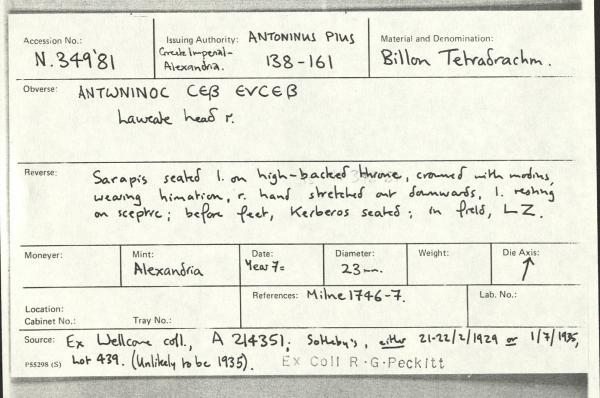 Accession No.:
N.349'81
Issuing Authority: ANTONINUS PIUS
Greek Imperial-
Alexandria. 138-161
Material and Denomination:
Billon Tetradrachm.
Obverse: ANTWNINOC CEβ EVCEβ
Laureate head r.
Reverse: Sarapis seated l. on high-backed throne, crowned with modius,
wearing himation, r. hand stretched out downwards, l. resting
on sceptre; before feet, Kerberos seated; in field, LZ.
Moneyer:
Mint:
Alexandria
Date:
Year 7=
Diameter:
23mm.
Weight:
Die Axis:
↑
Location:
Cabinet No.: Tray No.:
References: Milne 1746-7.
Lab. No.:
Source: Ex Wellcome coll., A 214351; Sotheby's, either 21-22/2/1929 or 1/7/1935,
P55298 (S) Lot 439. (Unlikely to be 1935). Ex Coll R·G·Peckitt